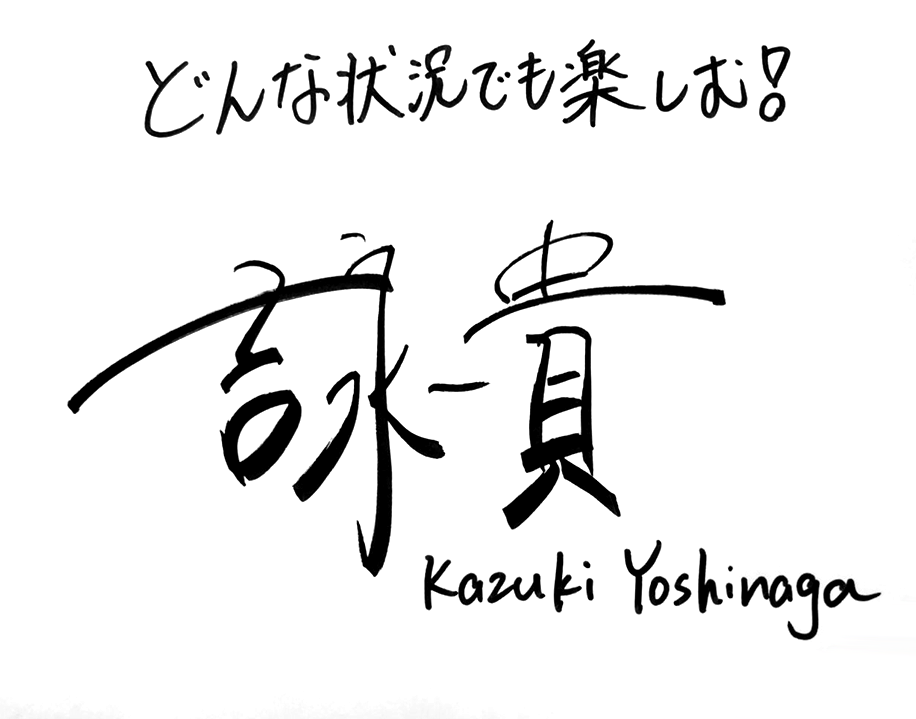 どんな状況でも楽しむ!
詠一貴
Kazuki Yoshinaga